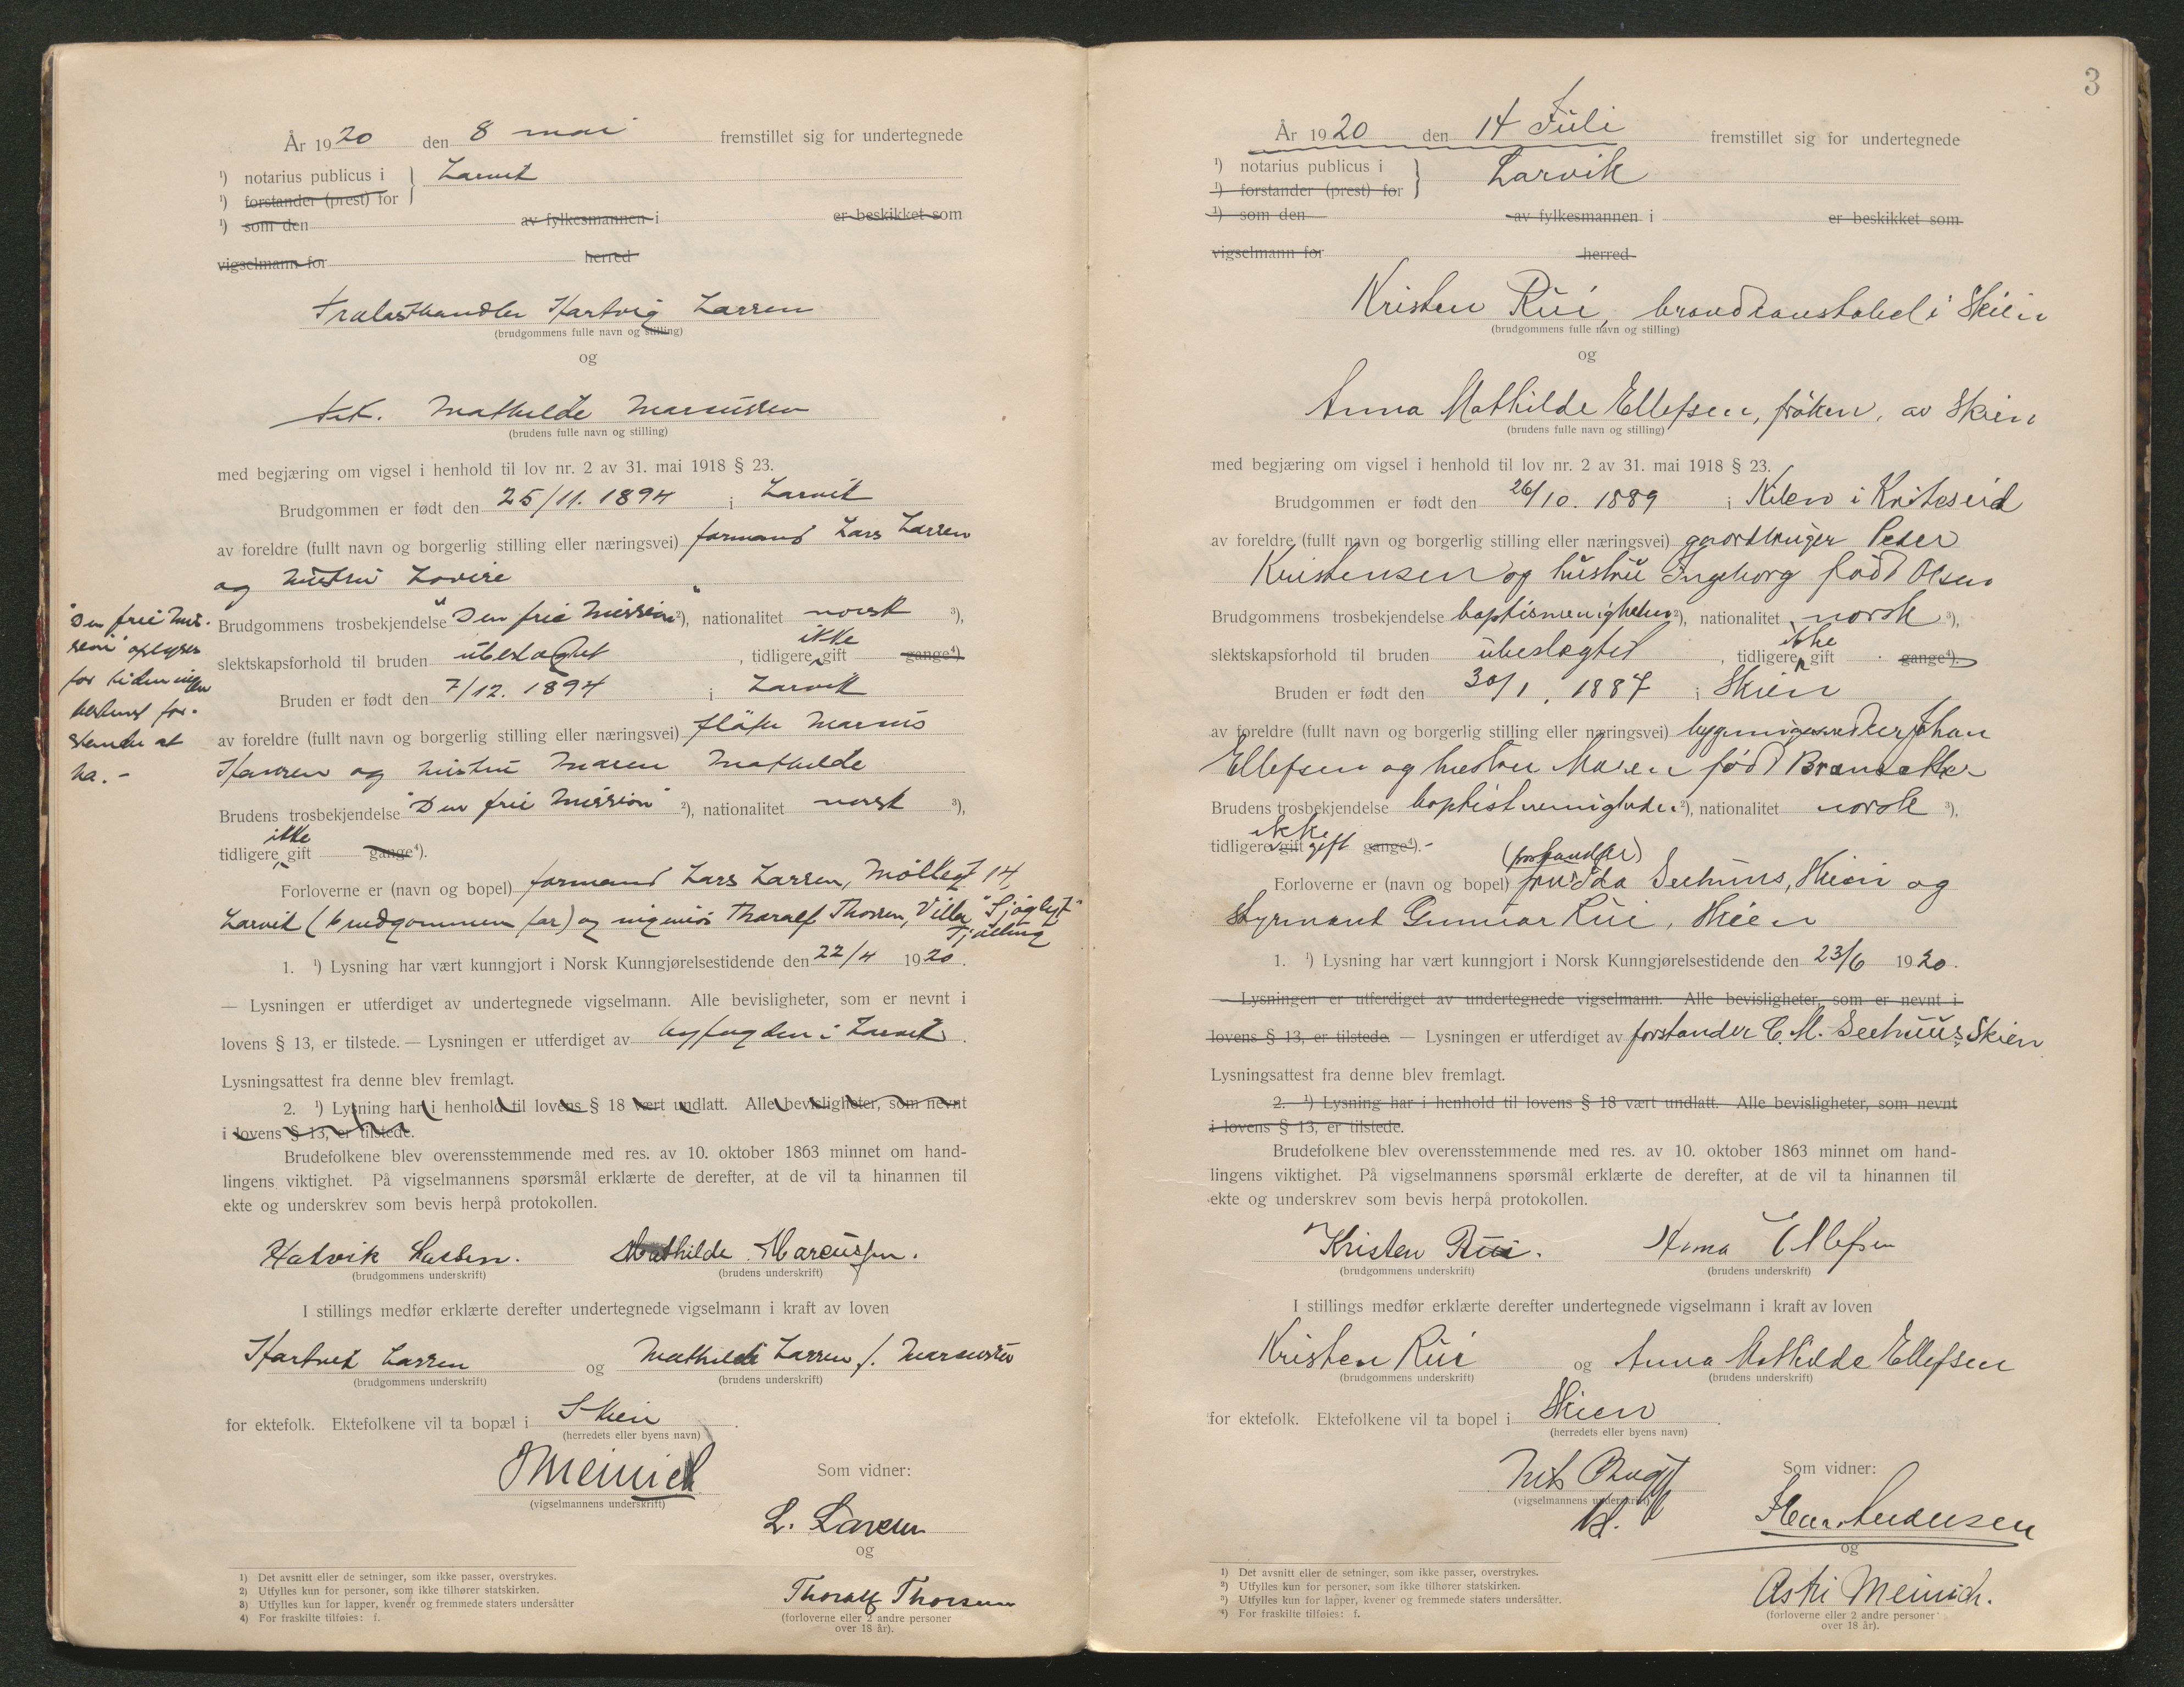 År 1920 den 8 mai fremstillet sig for undertegnede
¹) notarius publicus i } Larvik
¹) forstander (prest) for
¹) som den av fylkesmannen i er beskikket som
vigselmann for herred
Trælasthandler Hartvig Larsen
(brudgommens fulle navn og stilling)
og
frk. Mathilde Marcussen
(brudens fulle navn og stilling)
med begjæring om vigsel i henhold til lov nr. 2 av 31. mai 1918 § 23.
Brudgommen er født den 25/11. 1894 i Larvik
av foreldre (fullt navn og borgerlig stilling eller næringsvei) formand Lars Larsen
og hustru Lovise
Brudgommens trosbekjendelse "Den frie Mission" ²), nationalitet norsk ³),
slektskapsforhold til bruden ubeslægtet, tidligere ikke gift gange⁴).
Bruden er født den 7/12. 1894 i Larvik
av foreldre (fullt navn og borgerlig stilling eller næringsvei) fløter Marius
Hansen og hustru Maren Mathilde
Brudens trosbekjendelse "Den frie Mission" ²), nationalitet norsk ³),
tidligere ikke gift gange⁴).
Forloverne er (navn og bopel) formand Lars Larsen, Møllegt 14,
Larvik (brudgommens far) og ingeniør Thoralf Thorsen, Villa "Sjøglyt"
Tjølling
"Den frie Mis-
sion" oplyses
for tiden ingen
bestemt for-
stander at
ha. -
1. ¹) Lysning har vært kunngjort i Norsk Kunngjørelsestidende den 22/4 1920.
— Lysningen er utferdiget av undertegnede vigselmann. Alle bevisligheter, som er nevnt i
lovens § 13, er tilstede. — Lysningen er utferdiget av byfogden i Larvik.
Lysningsattest fra denne blev fremlagt.
2. ¹) Lysning har i henhold til lovens § 18 vært undlatt. Alle bevisligheter, som nevnt
i lovens § 13, er tilstede.
Brudefolkene blev overensstemmende med res. av 10. oktober 1863 minnet om hand-
lingens viktighet. På vigselmannens spørsmål erklærte de derefter, at de vil ta hinannen til
ekte og underskrev som bevis herpå protokollen.
Hatvik Larsen. Mathilde Marcussen.
(brudgommens underskrift) (brudens underskrift)
I stillings medfør erklærte derefter undertegnede vigselmann i kraft av loven
Hartvik Larsen og Mathilde Larsen f. Marcussen
(brudgommens underskrift) (brudens underskrift)
for ektefolk. Ektefolkene vil ta bopæl i Skien.
(herredets eller byens navn)
Meinich
(vigselmannens underskrift)
Som vidner:
L. Larsen
og
Thoralf Thorsen
(forloverne eller 2 andre personer
over 18 år).
1) Det avsnitt eller de setninger, som ikke passer, overstrykes.
2) Utfylles kun for personer, som ikke tilhører statskirken.
3) Utfylles kun for lapper, kvener og fremmede staters undersåtter
4) For fraskilte tilføies: f.
3
År 1920 den 14 Juli fremstillet sig for undertegnede
¹) notarius publicus i } Larvik
¹) forstander (prest) for
¹) som den av fylkesmannen i er beskikket som
vigselmann for herred
Kristen Rui, brandkonstabel i Skien
(brudgommens fulle navn og stilling)
og
Anna Mathilde Ellefsen, frøken, av Skien
(brudens fulle navn og stilling)
med begjæring om vigsel i henhold til lov nr. 2 av 31. mai 1918 § 23.
Brudgommen er født den 26/10. 1889 i Kilen i Kviteseid
av foreldre (fullt navn og borgerlig stilling eller næringsvei) gaardbruger Peder
Kristensen og hustru Ingeborg født Olsen
Brudgommens trosbekjendelse baptismenigheten ²), nationalitet norsk ³),
slektskapsforhold til bruden ubeslægtet, tidligere ikke gift gange⁴).
Bruden er født den 30/1. 1887 i Skien
av foreldre (fullt navn og borgerlig stilling eller næringsvei) bygningssnedker Johan
Ellefsen og hustru Maren født
Brudens trosbekjendelse baptistmenigheden ²), nationalitet norsk ³),
tidligere ikke gift gift gange⁴).-
(forstander)
Forloverne er (navn og bopel) fru Ida Seehuus, Skien og
Styrmand Gunnar Rui, Skien
1. ¹) Lysning har vært kunngjort i Norsk Kunngjørelsestidende den 23/6 1920.
— Lysningen er utferdiget av undertegnede vigselmann. Alle bevisligheter, som er nevnt i
lovens § 13, er tilstede. — Lysningen er utferdiget av forstander C. M. Seehuus, Skien
Lysningsattest fra denne blev fremlagt.
2. ¹) Lysning har i henhold til lovens § 18 vært undlatt. Alle bevisligheter, som nevnt
i lovens § 13, er tilstede.
Brudefolkene blev overensstemmende med res. av 10. oktober 1863 minnet om hand-
lingens viktighet. På vigselmannens spørsmål erklærte de derefter, at de vil ta hinannen til
ekte og underskrev som bevis herpå protokollen.
Kristen Rui. Anna Ellefsen
(brudgommens underskrift) (brudens underskrift)
I stillings medfør erklærte derefter undertegnede vigselmann i kraft av loven
Kristen Rui og Anna Mathilde Ellefsen
(brudgommens underskrift) (brudens underskrift)
for ektefolk. Ektefolkene vil ta bopel i Skien.
(herredets eller byens navn)
(vigselmannens underskrift)
Som vidner:
og
Astri Meinich.
(forloverne eller 2 andre personer
over 18 år).
1) Det avsnitt eller de setninger, som ikke passer, overstrykes.
2) Utfylles kun for personer, som ikke tilhører statskirken.
3) Utfylles kun for lapper, kvener og fremmede staters undersåtter.
4) For fraskilte tilføies: f.